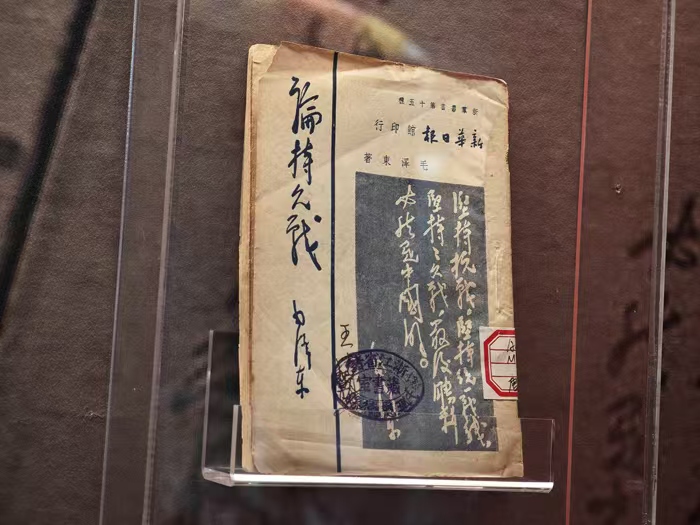 論持久戰
毛澤東
新羣叢書第十五種
新華日報館印行
毛澤東著
堅持抗戰，堅持統一戰線，
堅持持久戰，最後勝利
必然是中國的。
王